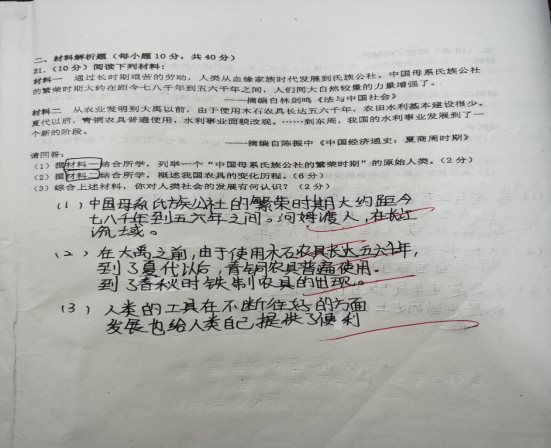 二、材料解析题（每小题10分，共40分）
21.（10分）阅读下列材料：
材料一 通过长时期艰苦的劳动，人类从血缘家族时代发展到氏族公社。中国母系氏族公社
的繁荣时期大约在距今七八千年到五六千年之间，人们同大自然较量的力量增强了。
——摘编自林剑鸣《法与中国社会》
材料二 从农业发明到大禹以前，由于使用木石农具长达五六千年，农田水利基本建设很少。
夏代以后，青铜农具普遍使用，水利事业面貌改观。……到东周，我国的水利事业发展到了一
个新的阶段。
——摘编自陈振中《中国经济通史：夏商周时期》
请回答：
（1）据材料一结合所学，列举一个“中国母系氏族公社的繁荣时期”的原始人类。（2分）
（2）据材料二结合所学，概述我国农具的变化历程。（6分）
（3）综合上述材料，你对人类社会的发展有何认识？（2分）
（1）中国母系氏族公社的繁荣时期大约距今
七八千年到五六年之间。河姆渡人，在长江
流域。
（2）在大禹之前，由于使用木石农具长达五六千年，
到了夏代以后，青铜农具普遍使用.
到了春秋时铁制农具的出现。
（3）人类的工具在不断往好的方面
发展也给人类自己提供了便利